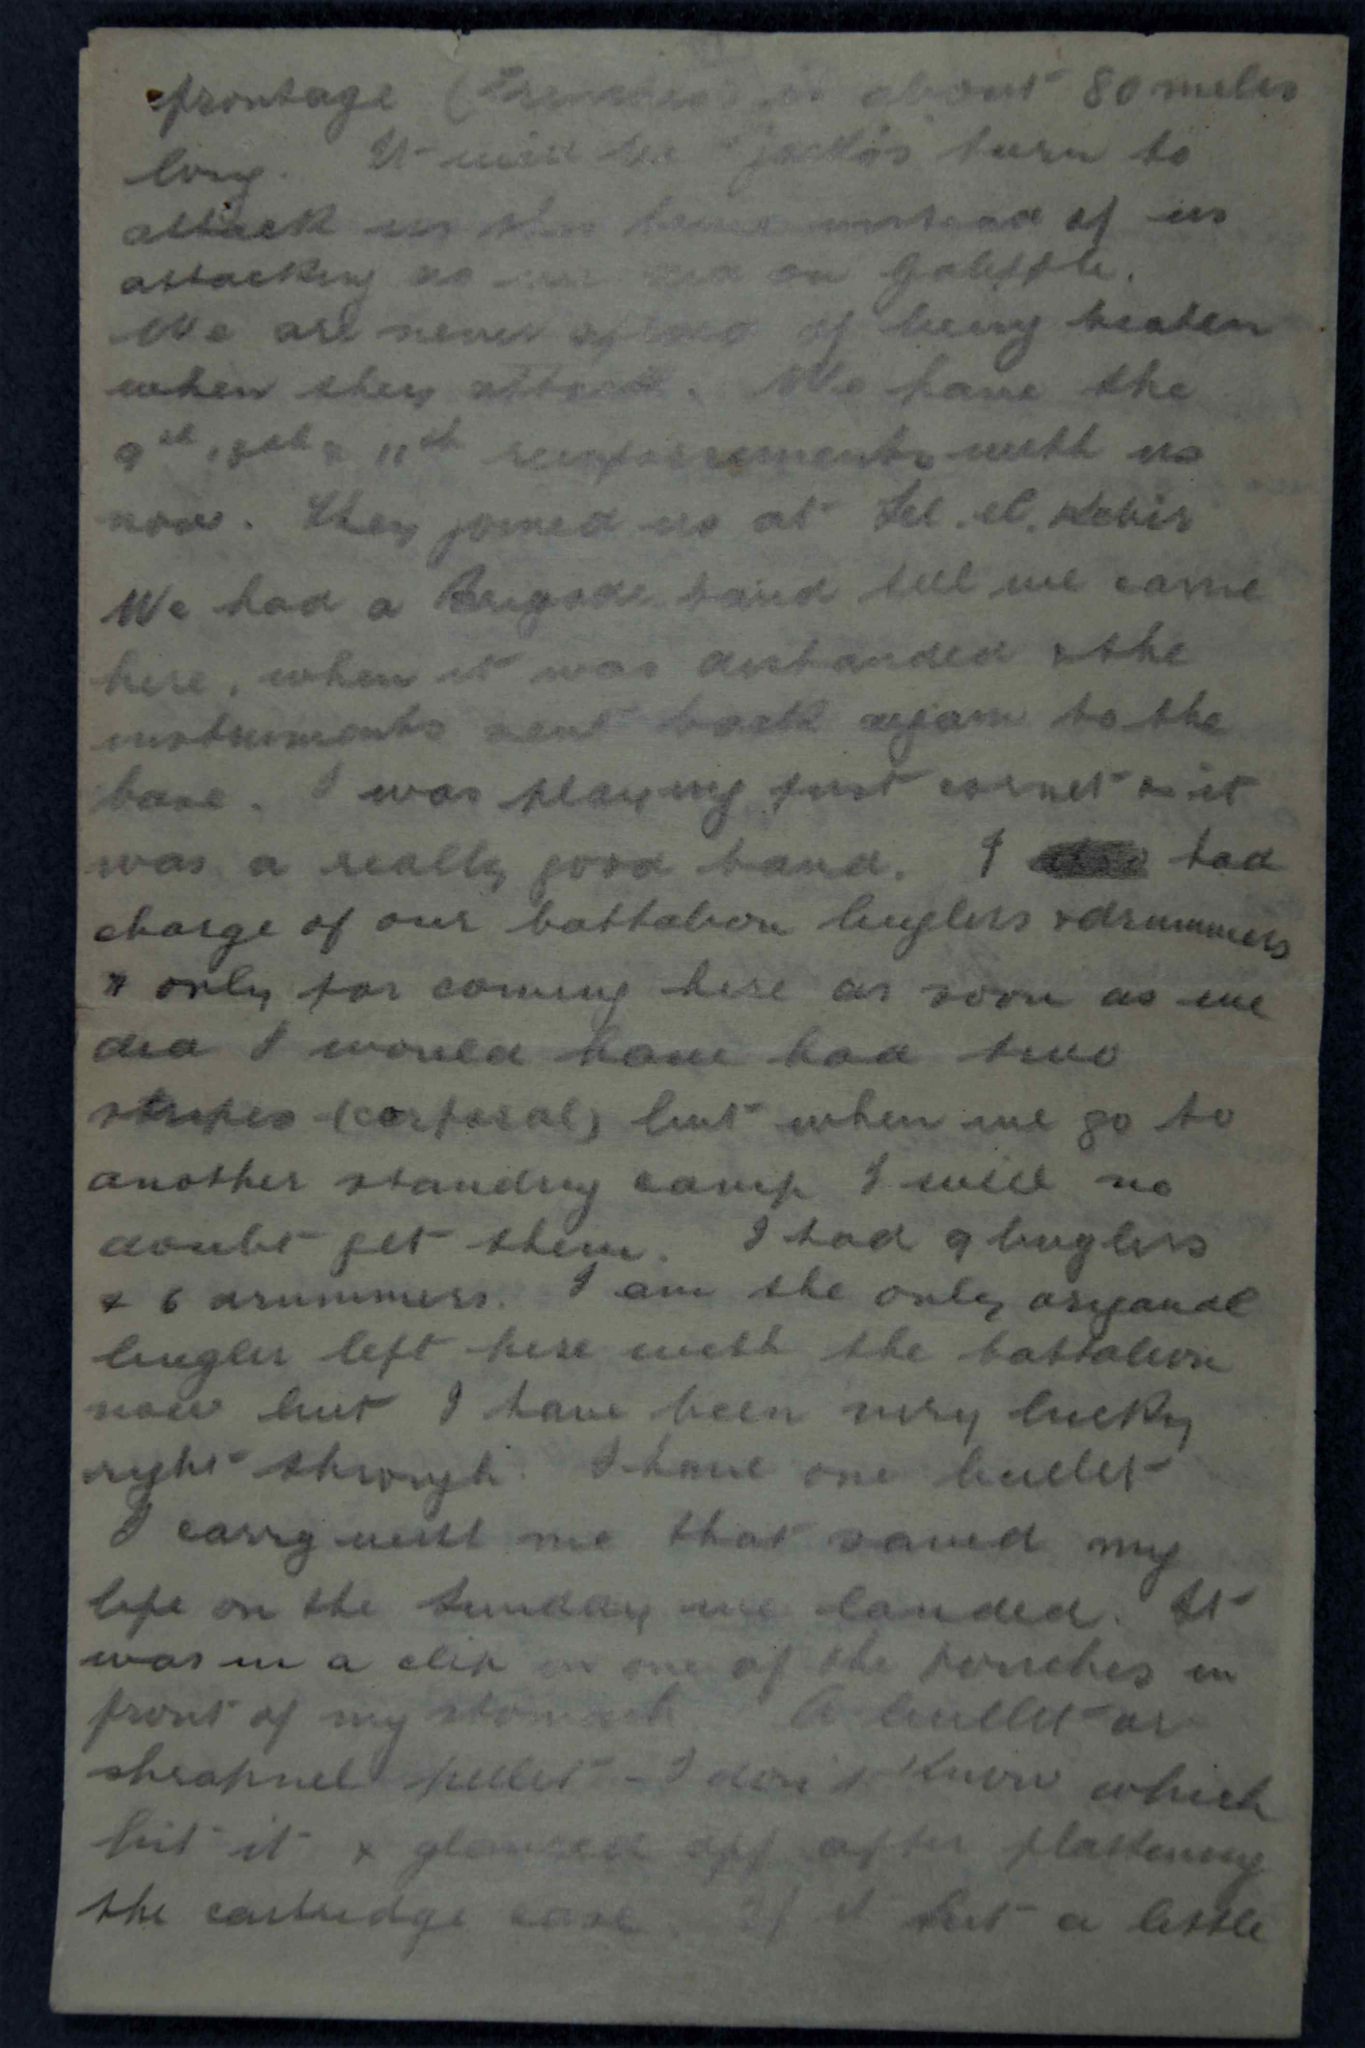 frontage (Trenches) is about 80 miles
long. It will be "jacko's turn to
attack us this time instead of us
attacking as we did on Gallipoli.
We are never afraid of being beaten
when they attack. We have the
9th, 10th & 11th reinforcements with us
now. They joined us at Tel. el. Kebir
We had a Brigade band till we came
here, when it was disbanded & the
instruments sent back again to the
base. I was playing first cornet & it
was a really good band. I had
charge of our battalion buglers & drummers
& only for coming here as soon as we
did I would have had two
stripes (corporal) but when we go to
another standing camp I will no
doubt get them. I had 9 buglers
& 6 drummers. I am the only origanal
bugler left here with the battalion
now but I have been very lucky
right through. I have one bullet
I carry with me that saved my
life on the Sunday we landed. It
was in a clip in one of the pouches in
front of my stomach. A bullet or
shrapnel pellet - I don't know which
hit it & glanced off after flattening
the cartridge case. If it hit a little